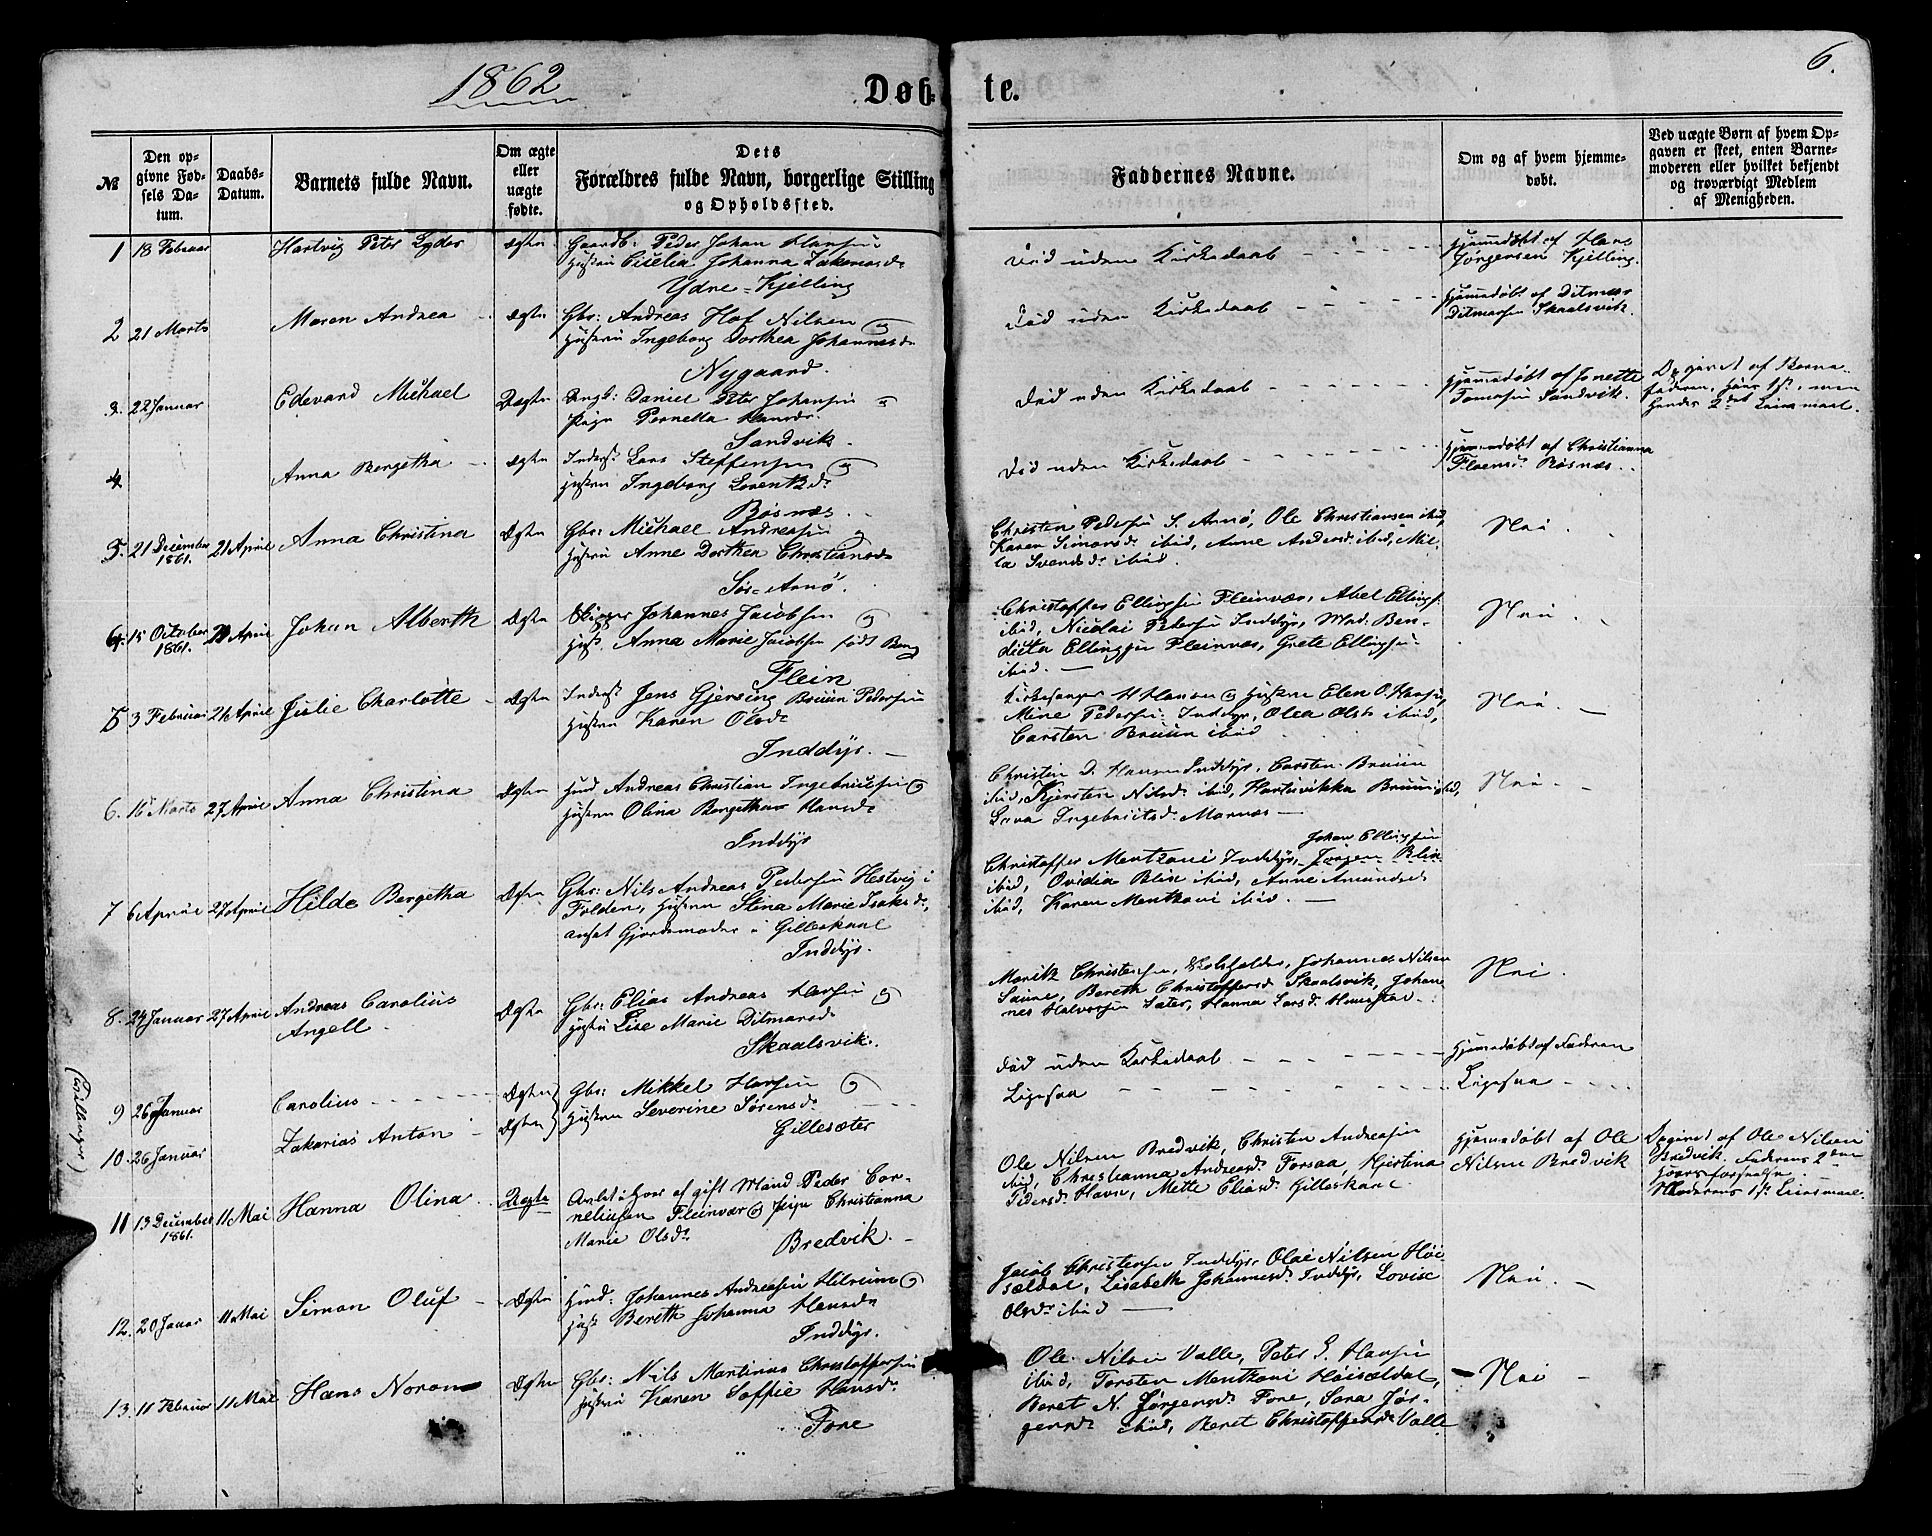 1862
Døb-
te.
6.
№
Den op-
givne Fød-
sels Da-
tum.
Daabs-
Datum.
Barnets fulde Navn.
Om ægte
eller
uægte
fødte.
Dets
Forældres fulde Navn, borgerlige Stilling
og Opholdssted.
Faddernes Navne.
Om og af hvem hjemme-
døbt.
Ved uægte Børn af hvem Op-
gaven er skeet, enten Barne-
moderen eller hvilket bekjendt
og troværdigt Medlem
af Menigheden.
1 18 Februar Hartvig Peter Lyder Ægte
Gaardb: Peder Johan Hansen
Hustru Cicelia Johanna Zakariasd.
Ydre-Kjelling
Død uden Kirkedaab
Hjemmedøbt af Hans
Jørgensen Kjelling.
2 21 Marts Maren Andrea Ægte
Gbr: Andreas Hof Nilsen
Hustru Ingeborg Dorthea Johannesd.
Nygaard.
Død uden Kirkedaab
Hjemmedøbt af Ditmar
Ditmarsen Skaalsvik.
3. 22 Januar Edevard Michael Uægte
Ungk: Daniel Peter Johansen
Pige Pernella Hansd.
Sandvik.
Død uden Kirkedaab
Hjemmedøbt af Jonette
Tomasen Sandvik.
Opgivet af Barne-
faderen, hans 1st, men
hendes 2det Leiermaal.
4. Anna Bergetha Ægte
Inderst Lars Steffensen
Hustru Ingeborg Lorentzd.
Bøsnæs.
Død uden Kirkedaab
Hjemmedøbt af Christianna
Røsnæs.
5. 21 December 21 April Anna Christina Ægte
1861.
Gbr: Michael Andreasen
Hustru Anne Dorthea Christiansd.
Sør-Arnø.
Christen Pedersen S. Arnø, Ole Christiansen ibid,
Karen Simonsd. ibid, Anne Andersd. ibid, Mil-
la Svendsd. ibid.
Nei.
15 October April Johan Alberth Ægte
1861.
Skipper Johannes Jacobsen
Hust. Anna Marie Jacobsen født Berg
Flein
Christoffer Ellingsen Fleinvær, Abel Ellings.
ibid, Nicolai Petersen Inddyr, Mad. Ben-
dicta Ellingsen Fleinvær, Grete Ellingsen
ibid.
Nei
5 3 Februar 21 April Julie Charlotte Ægte
Inderst Jens Gjersing Bruun Pedersen
Hustru Karen Olsd.
Inddyr.
Kirkesanger H Hansen Hustru Elen O. Hansen,
Mine Pedersen Inddyr, Olea Olsd. ibid,
Carsten Bruun ibid
Nei.
6. 16 Marts 27 April Anna Christina Ægte
Husmd Andreas Christian Ingebrigtsen
Hustru Olina Bergethav Hansd.
Inddyr
Christen D. Hansen Inddyr, Carsten Bruun
ibid, Kjersten Nilsd. ibid, Hartvikka Bruun ibid,
Lava Ingebrigtsd. Marnæs
Nei.
7 6 April 27 April Hilde Bergetha Ægte
Gbr: Nils Andreas Pedersen Hestvig i
Folden, Hustru Stina Marie Isaksd.,
ansat Gjordemoder i Gilleskaal
Inddyr.
Johan Ellingsen
Christoffer Mentzoni Inddyr, Jørgen Blix
ibid, Ovidia Blix ibid, Anne Amundsd.
ibid, Karen Mentzoni ibid.
8. 24 Januar 27 April Andreas Carolius Ægte
Angell
Gbr: Elias Andreas Hansen
Hustru Lise Marie Ditmarsd.
Skaalsvik.
Marith Christensen, Johannes Nilsen
Saure, Bereth Christoffersd. Skaalsvik, Johan-
nes Halvorsen Sæter, Hanna Larsd.
Nei.
(Tvillinger)
9 26 Januar Carolius Ægte
10. 26 Januar Zakarias Anton Ægte
Gbr: Mikkel Hansen
Hustru Severine Sørensd.
Gillesæter
Død uden Kirkedaab
Ligesaa
Hjemmedøbt af Faderen
Ligesaa
11 13 December 11 Mai Hanna Olina Uægte
1861.
Avlet i Hor af gift Mand Peder Cor-
neliusen Fleinvær Pige Christianna
Marie Olsd.
Bredvik.
Ole Nilsen Bredvik, Christen Andreasen
ibid, Christianna Andreasd. Forsaa, Kjerstina
Pedersd. Havn, Mette Eliasd. Gilleskaal.
Hjemmedøbt af Ole
Nilsen Bredvik
Opgivet af Ole Nilsen
Bredvik. Faderens 2den
Horsforseelse,
Moderens 1st Leiermaal.
12. 20 Januar 11 Mai Simon Oluf Ægte
Husmd: Johannes Andreasen
Hust Bereth Johanna Hansd.
Inddyr.
Jacob Christensen Inddyr, Olai Nilsen Høi-
sældal, Lisabeth Johannesd. Inddyr, Lovise
Olsd. ibid
Nei.
13. 11 Februar 11 Mai Hans Noran Ægte
Gbr: Nils Martinus Christoffersen
Hustru Karen Soffie Hansd.
Fore
Ole Nilsen Valle, Peter S. Hansen
ibid, Torsten Mentzoni Høisældal,
Beret N. Jørgensd. Fore, Sara Jør-
gensd. ibid, Beret Christoffersd. Valle
Nei